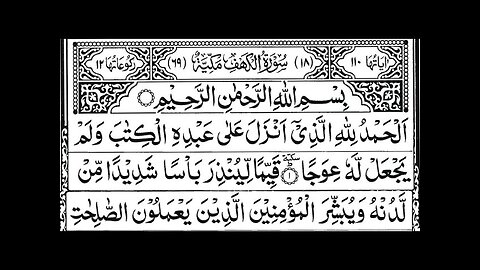 اٰیَاتُهَا ١١٠ (١٨) سُوْرَةُ الْكَهْفِ مَكِّیَّةٌ (٦٩) رُكُوْعَاتُهَا ١٢
بِسْمِ اللّٰهِ الرَّحْمٰنِ الرَّحِیْمِ
اَلْحَمْدُ لِلّٰهِ الَّذِیْۤ اَنْزَلَ عَلٰی عَبْدِهِ الْكِتٰبَ وَلَمْ
یَجْعَلْ لَّهٗ عِوَجًا ١ قَیِّمًا لِّیُنْذِرَ بَاْسًا شَدِیْدًا مِّنْ
لَّدُنْهُ وَیُبَشِّرَ الْمُؤْمِنِیْنَ الَّذِیْنَ یَعْمَلُوْنَ الصّٰلِحٰتِ